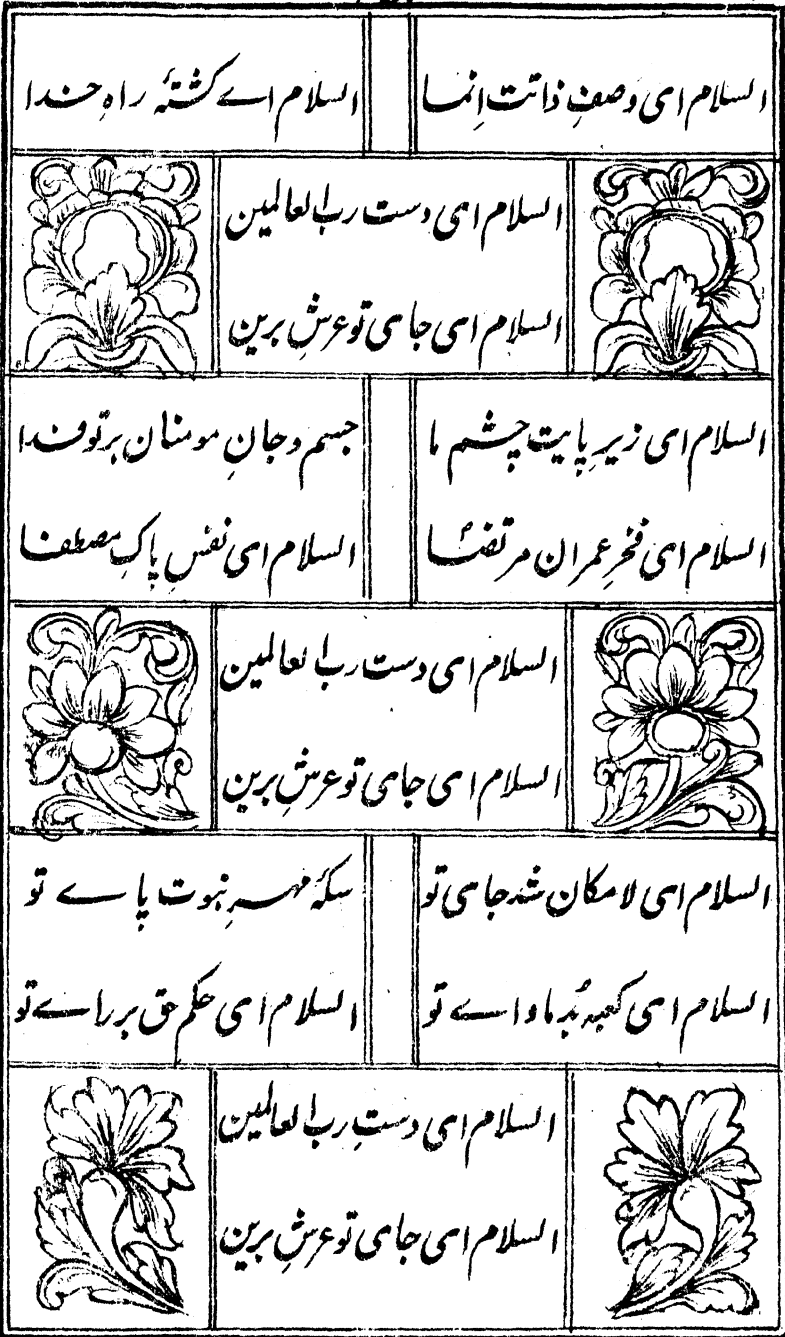 السلام ای وصفِ ذاتت اِنما
السلام اے کُشتۂ راہِ خدا
السلام ای دست رب العالمین
السلام ای جای تو عرشِ برین
السلام ای زیرِ پایت چشم ما
جسم و جانِ مومنان بر تو فدا
السلام ای فخرِ عمران مرتضیٰ
السلام ای نفسِ پاکِ مصطفا
السلام ای دست رب العالمین
السلام ای جای تو عرشِ برین
السلام ای لامکان شد جای تو
سکۂ مہرِ نبوت پاے تو
السلام ای کعبہ بُد ماواے تو
السلام ای حکم حق بر راے تو
السلام ای دستِ رب العالمین
السلام ای جای تو عرشِ برین